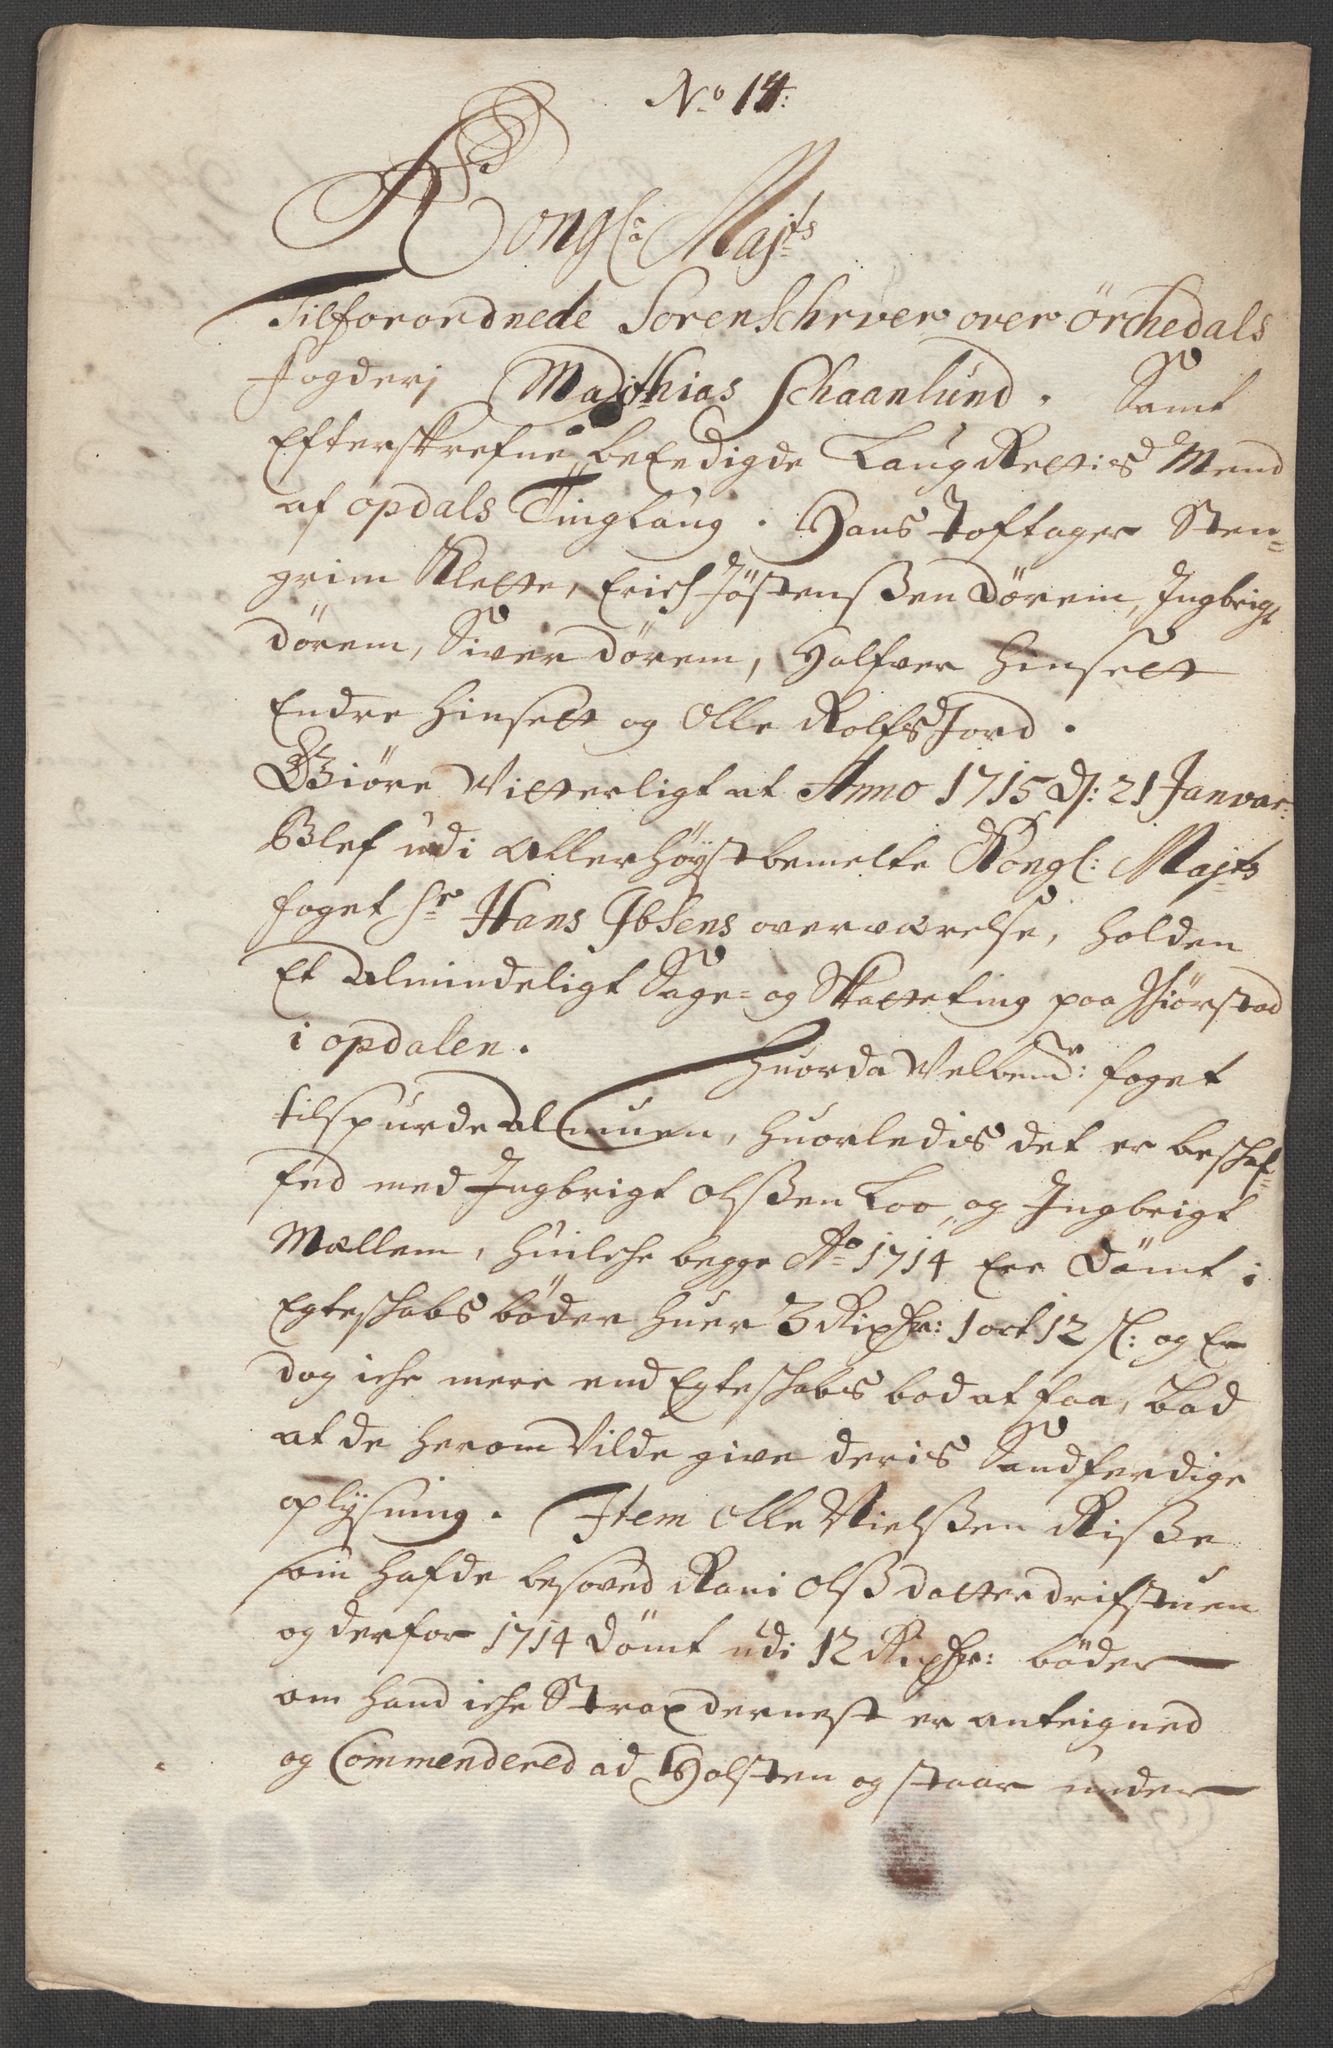 No 14:
Kongl: Majts
Tilforordnede Sorenschrver over Örchedals
fogderj Matthias Schaanlund. Samt
Efterskrefne beEedigde LaugRettis Mend
af opdals Tinglaug. Hans Toftager Sten=
grim Klette, Erich Jöstenßen Dörem, Ingbrigt
Dörem, Siver Dörem, Halfver Hinselt
Endre Hinselt og Olle RolfsJord.
Giöre Vitterligt at Anno 1715 d: 21 Janvar:
Blef udi allerhöystbemelte Kongl: Majts
foget Hr Hans Ibsens overværelse, holden
Et almindeligt Sage= og Skatteting paa
i opdalen. Huorda Velbemr: foget
tilspurde Almuen, huorledis det er beschaf=
fed med Ingbrigt Olßen Loo, og Ingbrigt
Mællem, huilche begge Ao 1714 Ere Dömt i
Egteschabs böder huer 3 Rixdr: 1 ort 12 s: og Er
dog iche mere end Egteschabs bod at faa, bad
at de herom Vilde give deris Sandferdige
oplysning. Item Olle Nielßen Riße
som hafde besoved Rani Olßdatter drifstuen
og derfor 1714 dömt udi 12 Rixdr: böder
om hand iche Strax dernest er anteigned
og Commendered ad Holsten og staar under